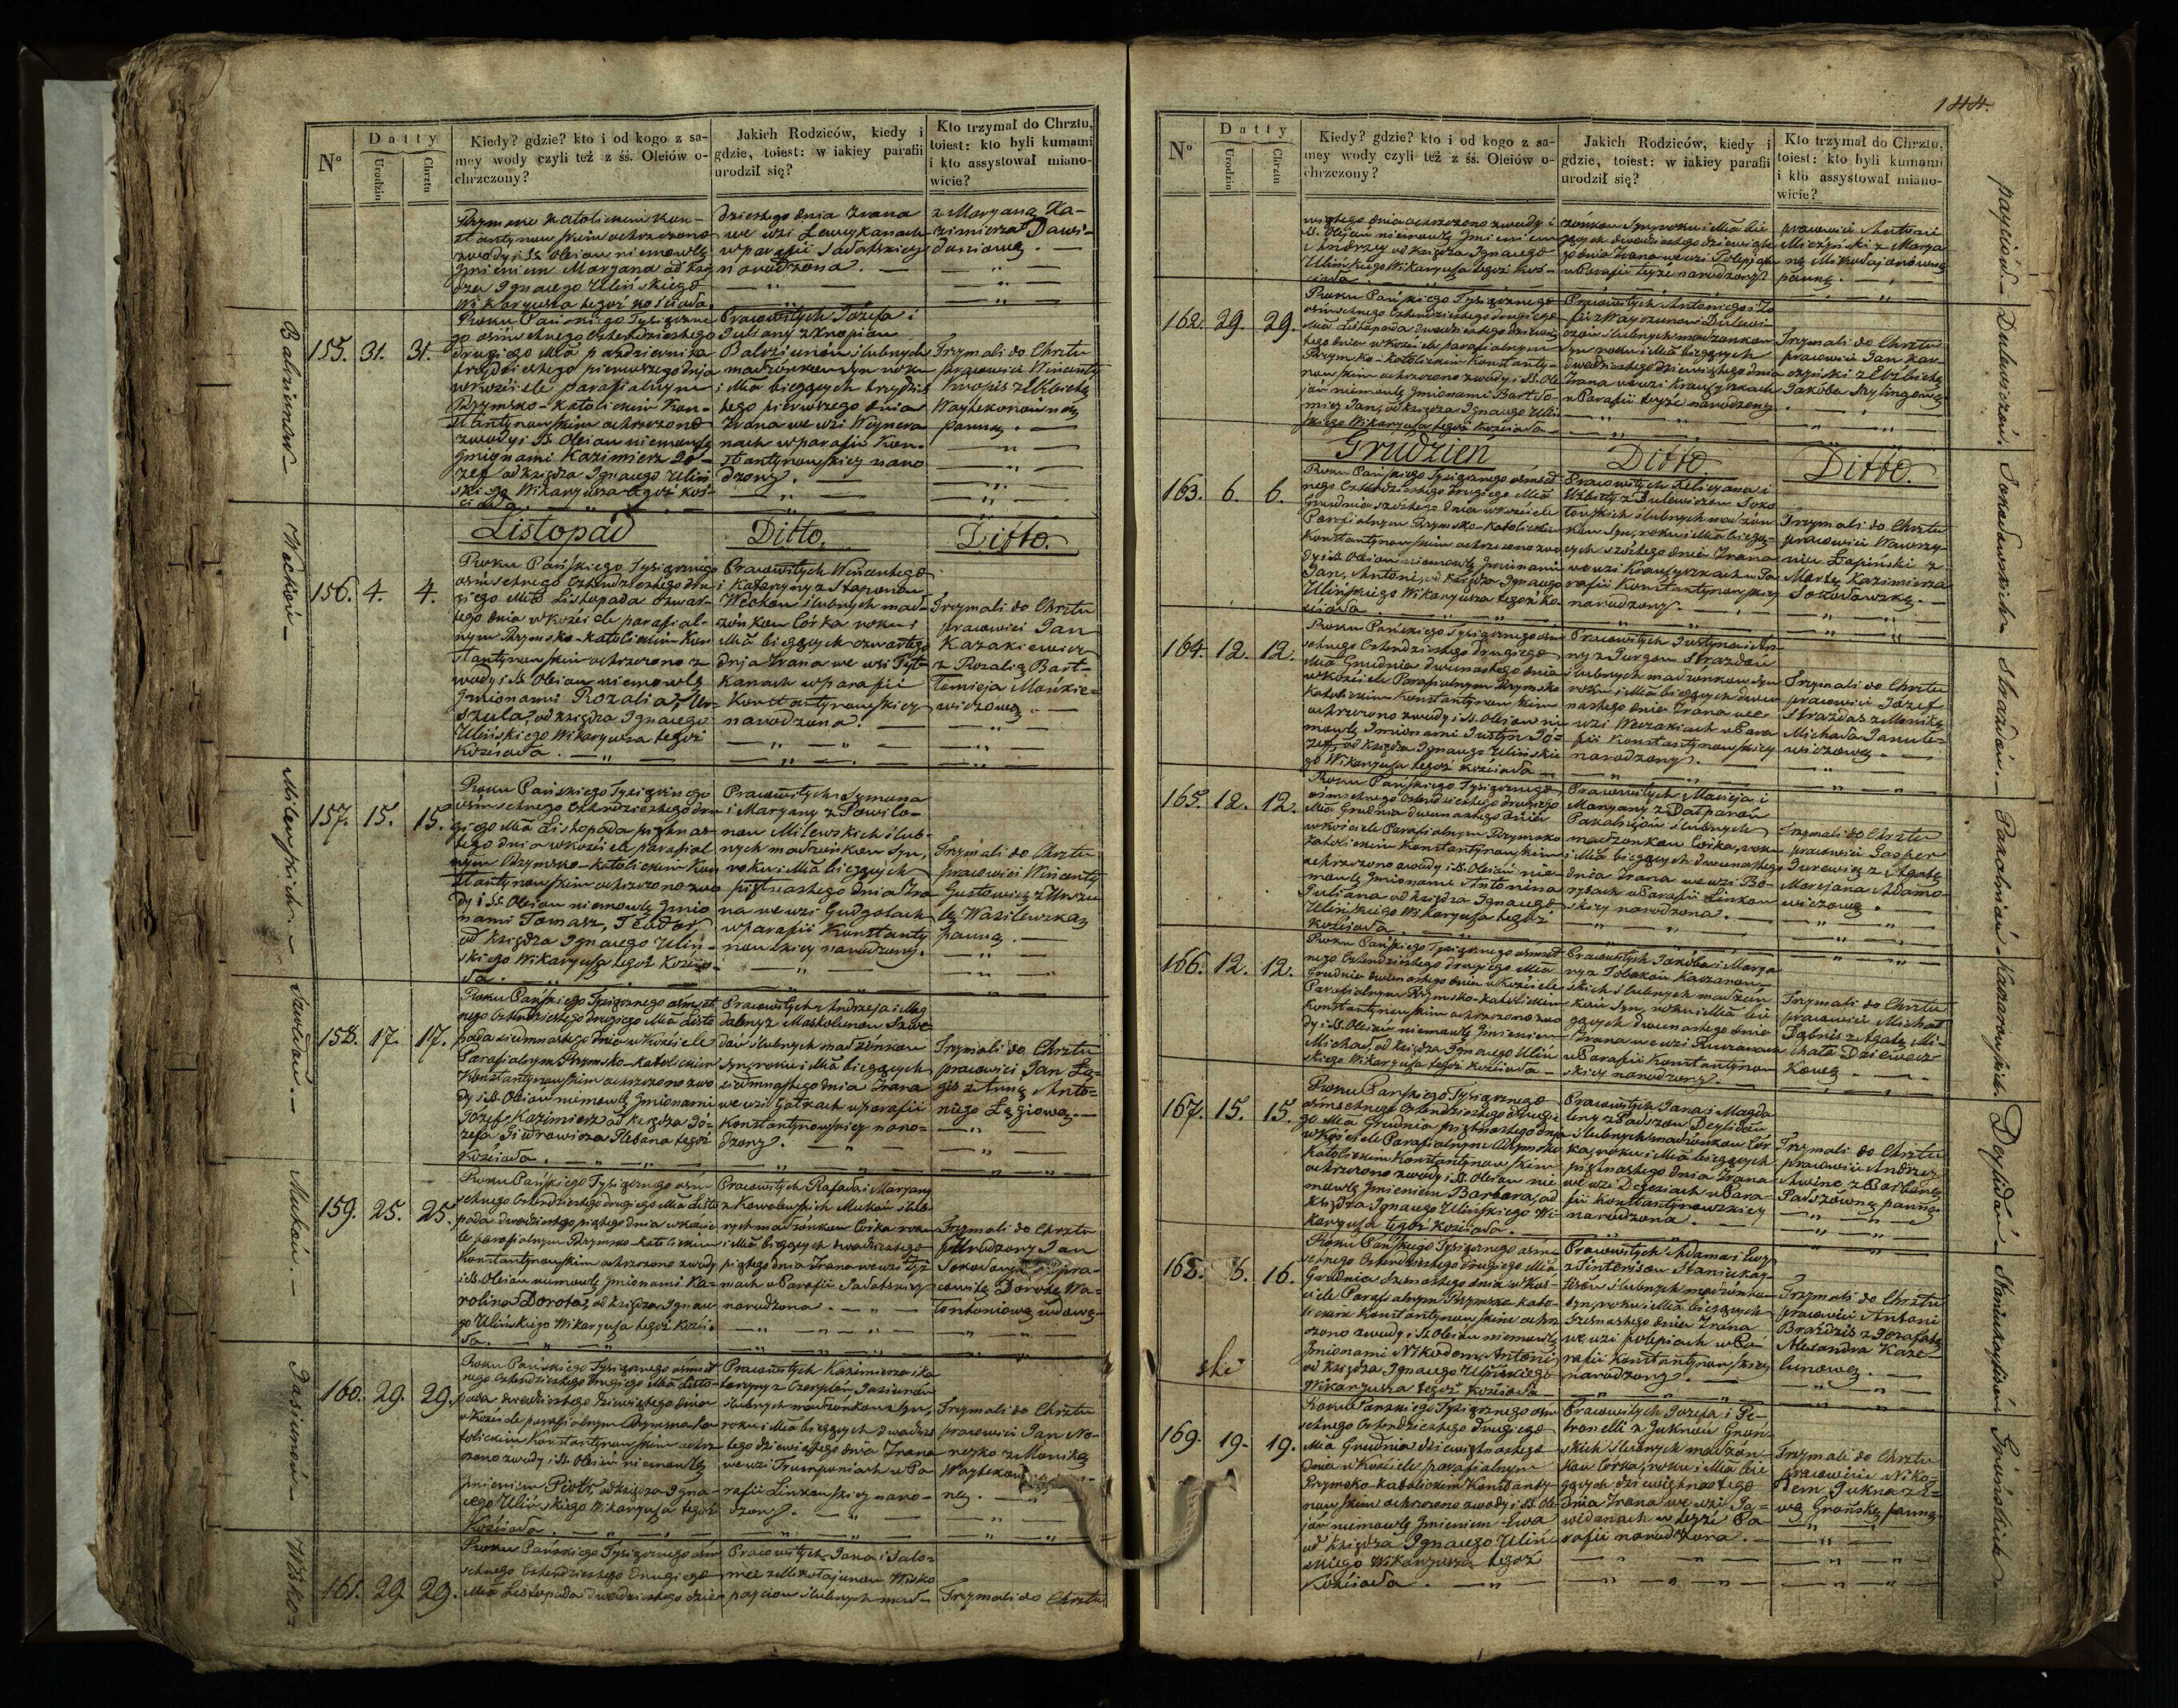 N°
Datty
Urodzin
Chrztu
Kiedy? gdzie? kto i od kogo z sa-
mey wody czyli też z śś. Oleiów o-
chrzczony?
Jakich Rodziców, kiedy i
gdzie, toiest: w iakiey parafii
urodził się?
Kto trzymał do Chrztu,
toiest: kto byli kumami
i kto assystował miano-
wicie?
Rzymsko Katolickim Kon-
stantynowskim ochrzczono
z wody i SS. Oleiow niemowlę
Jmieniem Maryana od Xię
dza Ignacego Ulińskiego
Wikaryusza tegoż kościoła.
dziestego dnia zrana
we wsi
w parafii
narodzona.
z Maryaną Ka-
zimierza Dawi-
daniową.
155. 31. 31.
Roku Pańskiego Tysiączne
go ośmsetnego Czterdziestego
drugiego Mca października
trzydziestego pierwszego dnia
w kościele parafialnym
Rzymsko-Katolickim Kon-
stantynowskim ochrzczono
z wody i SS. Oleiow niemowlę
Jmionami Kazimierz Jó-
zef od księdza Ignacego Uliń
skiego Wikaryusza tegoż koś-
cioła.
Pracowitych Józefa i
Julianny z Knopiow
Balziunów ślubnych
małżonkow syn roku
i Mca bieżących trzydzies
tego pierwszego dnia
zrana we wsi
nach w parafii Kon-
stantynowskiey naro
dzony.
Trzymali do Chrztu
pracowici Wincenty
Knopis z Elżbietą
Woytekonówną
panną.
Balziunow
Listopad
Ditto.
Ditto.
156. 4. 4.
Roku Pańskiego Tysiącznego
ośmsetnego Czterdziestego dru
giego Mca Listopada czwar-
tego dnia w kościele parafial-
nym Rzymsko-Katolickim Kon
stantynowskim ochrzczono z
wody i SS. Oleiow niemowlę
Jmionami Rozalia, Ur-
szula, od księdza Ignacego
Ulińskiego Wikaryusza tegoż
Kościoła.
Pracowitych Wincentego
i Katarzyny z Staponow
Weckow ślubnych mał-
żonkow Córka roku i
Mca bieżących czwartego
dnia zrana we wsi Tył-
kanach w parafii
Konstantynowskiey
narodzona.
Trzymali do Chrztu
pracowici Jan
Kazakiewicz
z Rozalią Bart-
łomieja Mańkie-
wiczową.
Weckow
157. 15. 15.
Roku Pańskiego Tysiącznego
ośmsetnego Czterdziestego dru
giego Mca Listopada piętnas-
tego dnia w kościele parafial
nym Rzymsko-Katolickim Kon
stantynowskim ochrzczono z wo
dy i SS. Oleiow niemowlę Jmio
nami Tomasz, Teodor,
od księdza Ignacego Uliń-
skiego Wikaryusza tegoż Kościo-
ła.
Pracowitych Symona
i Maryany z Powilo-
now Milewskich ślub-
nych małżonkow syn,
roku i Mca bieżących
piętnastego dnia zra
na we wsi Gudgołach
w parafii Konstanty
nowskiey narodzony.
Trzymali do Chrztu
pracowici Wincenty
Gustowicz z Urszu
lą Wasilewską
panną.
Milewskich
158. 17. 17.
Roku Pańskiego Tysiącznego ośmset
nego Czterdziestego drugiego Mca Listo
pada siedmnastego dnia w kościele
Parafialnym Rzymsko-Katolickim
Konstantynowskim ochrzczono z wo
dy i SS. Oleiow niemowlę Jmionami
Józef Kazimierz od księdza Jó-
zefa Giedrowicza Plebana tegoż
Kościoła.
Pracowitych Andrzeja i Mag
daleny z Maskolunow Szwe
dow ślubnych małżonkow
syn, roku i Mca bieżących
siedmnastego dnia zrana
we wsi Gołkach w parafii
Konstantynowskiey naro-
dzony.
Trzymali do Chrztu
pracowici Jan Łę-
gis z Anną Anto-
niego Łęgiową.
Szwedow
159. 25. 25.
Roku Pańskiego Tysiącznego ośm
setnego Czterdziestego drugiego Mca Listo
pada dwudziestego piątego dnia w koście
le parafialnym Rzymsko-Katolickim
Konstantynowskim ochrzczono z wody
i SS. Oleiow niemowlę Jmionami Ka-
rolina Dorota, od księdza Ignace
go Ulińskiego Wikaryusza tegoż Kościo
ła.
Pracowitych Rafała i Maryany
z Kowalewskich Mukow ślub
nych małżonkow Córka roku
i Mca bieżących dwudziestego
piątego dnia zrana we wsi
nach w Parafii
narodzona.
Trzymali do Chrztu
Urodzony Jan
z pra-
cowitą Dorotą Wa-
łontoniową wdową.
Mukow.
160. 29. 29.
Roku Pańskiego Tysiącznego ośmset
nego Czterdziestego drugiego Mca Listo-
pada dwudziestego dziewiątego dnia
w kościele parafialnym Rzymsko-Ka
tolickim Konstantynowskim ochrz
czono z wody i SS. Oleiow niemowlę
Jmieniem Piotr, od księdza Igna-
cego Ulińskiego Wikaryusza tegoż
Kościoła.
Pracowitych Kazimierza i Ka
tarzyny z Czereplow Jasiunow
ślubnych małżonkow syn,
roku i Mca bieżących dwudzies
tego dziewiątego dnia zrana
we wsi Trumponiach w Pa
rafii Linkowskiey naro-
dzony.
Trzymali do Chrztu
pracowici Jan No-
reyko z Moniką
ną.
Jasiunow
161. 29. 29.
Roku Pańskiego Tysiącznego ośm
setnego Czterdziestego drugiego
Mca Listopada dwudziestego dzie
Pracowitych Jana i Salo-
mei z Mikołajunow Wisko
payciow ślubnych mał-
Trzymali do Chrztu
Wisko-
144.
N°
Datty
Urodzin
Chrztu
Kiedy? gdzie? kto i od kogo z sa-
mey wody czyli też z śś. Oleiów o-
chrzczony?
Jakich Rodziców, kiedy i
gdzie, toiest: w iakiey parafii
urodził się?
Kto trzymał do Chrztu,
toiest: kto byli kumami
i kto assystował miano-
wicie?
wiątego dnia ochrzczono z wody i
SS. Oleiow niemowlę Jmieniem
Andrzey od księdza Ignacego
Ulińskiego Wikaryusza tegoż Koś-
cioła.
żonkow syn, roku i Mca bie
żących dwudziestego dziewiąte
go dnia zrana we wsi Polepiach
w Parafii teyże narodzony.
pracowici Antoni
Miczyński z Marya
ną Mikołajonówną
panną.
payciow
162. 29. 29.
Roku Pańskiego Tysiącznego
ośmsetnego Czterdziestego drugiego
Mca Listopada dwudziestego dziewią
tego dnia w kościele parafialnym
Rzymsko-Katolickim Konstanty-
nowskim ochrzczono z wody i SS. Ole
jow niemowlę Jmionami Bartło-
miey Jan, od księdza Ignacego Uliń
skiego Wikaryusza tegoż Kościoła
Pracowitych Antoniego i Zo
fii z Wayczunow Dulewi-
czow ślubnych małżonkow
syn roku i Mca bieżących
dwudziestego dziewiątego dnia
zrana we wsi Krauszyszkach
w Parafii teyże narodzony
Trzymali do Chrztu
pracowici Jan Kar-
czyński z Elżbietą
Jakóba Szylingową
Dulewiczow.
Grudzien
Ditto
Ditto.
163. 6. 6.
Roku Pańskiego Tysiącznego ośmset
nego Czterdziestego drugiego Mca
Grudnia szóstego dnia w kościele
Parafialnym Rzymsko-Katolickim
Konstantynowskim ochrzczono z wo
dy i SS. Oleiow niemowlę Jmionami
Jan, Antoni, od księdza Ignacego
Ulińskiego Wikaryusza tegoż Ko-
ścioła
Pracowitych Felicyana i
Elżbiety z Dulewiczow Soko
łowskich ślubnych małżon
kow syn, roku i Mca bieżą-
cych szóstego dnia zrana
we wsi Krauszyszkach w Pa
rafii Konstantynowskiey
narodzony.
Trzymali do Chrztu
pracowici Wawrzy-
niec Łapiński z
Martą Kazimierza
Sokołowską.
Sokołowskich
164. 12. 12.
Roku Pańskiego Tysiącznego ośm
setnego Czterdziestego drugiego
Mca Grudnia dwunastego dnia
w kościele Parafialnym Rzymsko
Katolickim Konstantynowskim
ochrzczono z wody i SS. Oleiow nie
mowlę Jmionami Justyn Jó-
zef, od księdza Ignacego Ulińskie
go Wikaryusza tegoż kościoła
Pracowitych Justyna i An
ny z Jurgow Strazdow
ślubnych małżonkow syn
roku i Mca bieżących dwu
nastego dnia zrana we
wsi Weczakiach w Para
fii Konstantynowskiey
narodzony.
Trzymali do Chrztu
pracowici Józef
Strazdas z Moniką
Michała Janule-
wiczową.
Strazdow.
165. 12. 12.
Roku Pańskiego Tysiącznego
ośmsetnego Czterdziestego drugiego
Mca Grudnia dwunastego dnia
w kościele Parafialnym Rzymsko
Katolickim Konstantynowskim
ochrzczono z wody i SS. Oleiow nie
mowlę Jmionami Antonina
Julianna od księdza Ignacego
Ulińskiego Wikaryusza tegoż
Kościoła.
Pracowitych Macieja i
Maryany z Dałparow
Pakalniow ślubnych
małżonkow Córka, roku
i Mca bieżących dwunastego
dnia zrana we wsi Bo-
ryszach w Parafii Linkow
skiey narodzona.
Trzymali do Chrztu
pracowici Gasper
Jurewicz z Agatą
Marcjana Adamo-
wiczową.
Pakalniow
166. 12. 12.
Roku Pańskiego Tysiącznego ośmset
nego Czterdziestego drugiego Mca
Grudnia dwunastego dnia w kościele
Parafialnym Rzymsko-Katolickim
Konstantynowskim ochrzczono z wo
dy i SS. Oleiow niemowlę Jmieniem
Michał, od księdza Ignacego Uliń
skiego Wikaryusza tegoż kościoła
Pracowitych Jakóba i Marya
ny z Tobakow Kaczanow-
skich ślubnych małżon
kow syn, roku i Mca bie
żących dwunastego dnia
zrana we wsi Ruczanach
w Parafii Konstantynow
skiey narodzony.
Trzymali do Chrztu
pracowici Michał
z Agatą Mi-
chała Dziewecz-
kową.
Kaczanowskich
167. 15. 15.
Roku Pańskiego Tysiącznego
ośmsetnego Czterdziestego drugie
go Mca Grudnia piętnastego dnia
w kościele Parafialnym Rzymsko
Katolickim Konstantynowskim
ochrzczono z wody i SS. Oleiow nie
mowlę Jmieniem Barbara, od
księdza Ignacego Ulińskiego Wi-
karyusza tegoż kościoła.
Pracowitych Jana i Magda
leny z Padszow Deylidow
ślubnych małżonkow Cór
ka, roku i Mca bieżących
piętnastego dnia zrana
we wsi w Para-
fii Konstantynowskiey
narodzona.
Trzymali do Chrztu
pracowici Andrzey
Awino z Barbarą
Padszówną panną.
Deylidow
168. 16.
Roku Pańskiego Tysiącznego ośm
setnego Czterdziestego drugiego Mca
Grudnia szesnastego dnia w Koś-
ciele Parafialnym Rzymsko Kato-
lickim Konstantynowskim ochrz
czono z wody i SS. Oleiow niemowlę
Jmionami Nikodem, Antoni
od księdza Ignacego Ulińskiego
Wikaryusza tegoż Kościoła
Pracowitych Adama i Ewy
z Ginterisow Staniukay
tisow ślubnych małżonkow
syn, roku i Mca bieżących
szesnastego dnia zrana
we wsi polepiach w Pa-
rafii Konstantynowskiey
narodzony.
Trzymali do Chrztu
pracowici Antoni
Brazdzis z Jozafatą
Alexandra Kaze-
lunową.
Staniukaytisow
169. 19. 19.
Roku Pańskiego Tysiącznego ośm
setnego Czterdziestego drugiego
Mca Grudnia dziewiętnastego
dnia w kościele parafialnym
Rzymsko-Katolickim Konstanty-
nowskim ochrzczono z wody i SS. Ole
jow niemowlę Jmieniem Ewa
od księdza Ignacego Uliń-
skiego Wikaryusza tegoż
Kościoła.
Pracowitych Jozefa i Pe-
tronelli z Juknow Groń-
skich ślubnych małżon-
kow Córka, roku i Mca bie
żących dziewiętnastego
dnia zrana we wsi Ja-
widanach w teyże Pa-
rafii narodzona.
Trzymali do Chrztu
pracowici Niko-
dem Jukna z E-
wą Grońską panną.
Grońskich